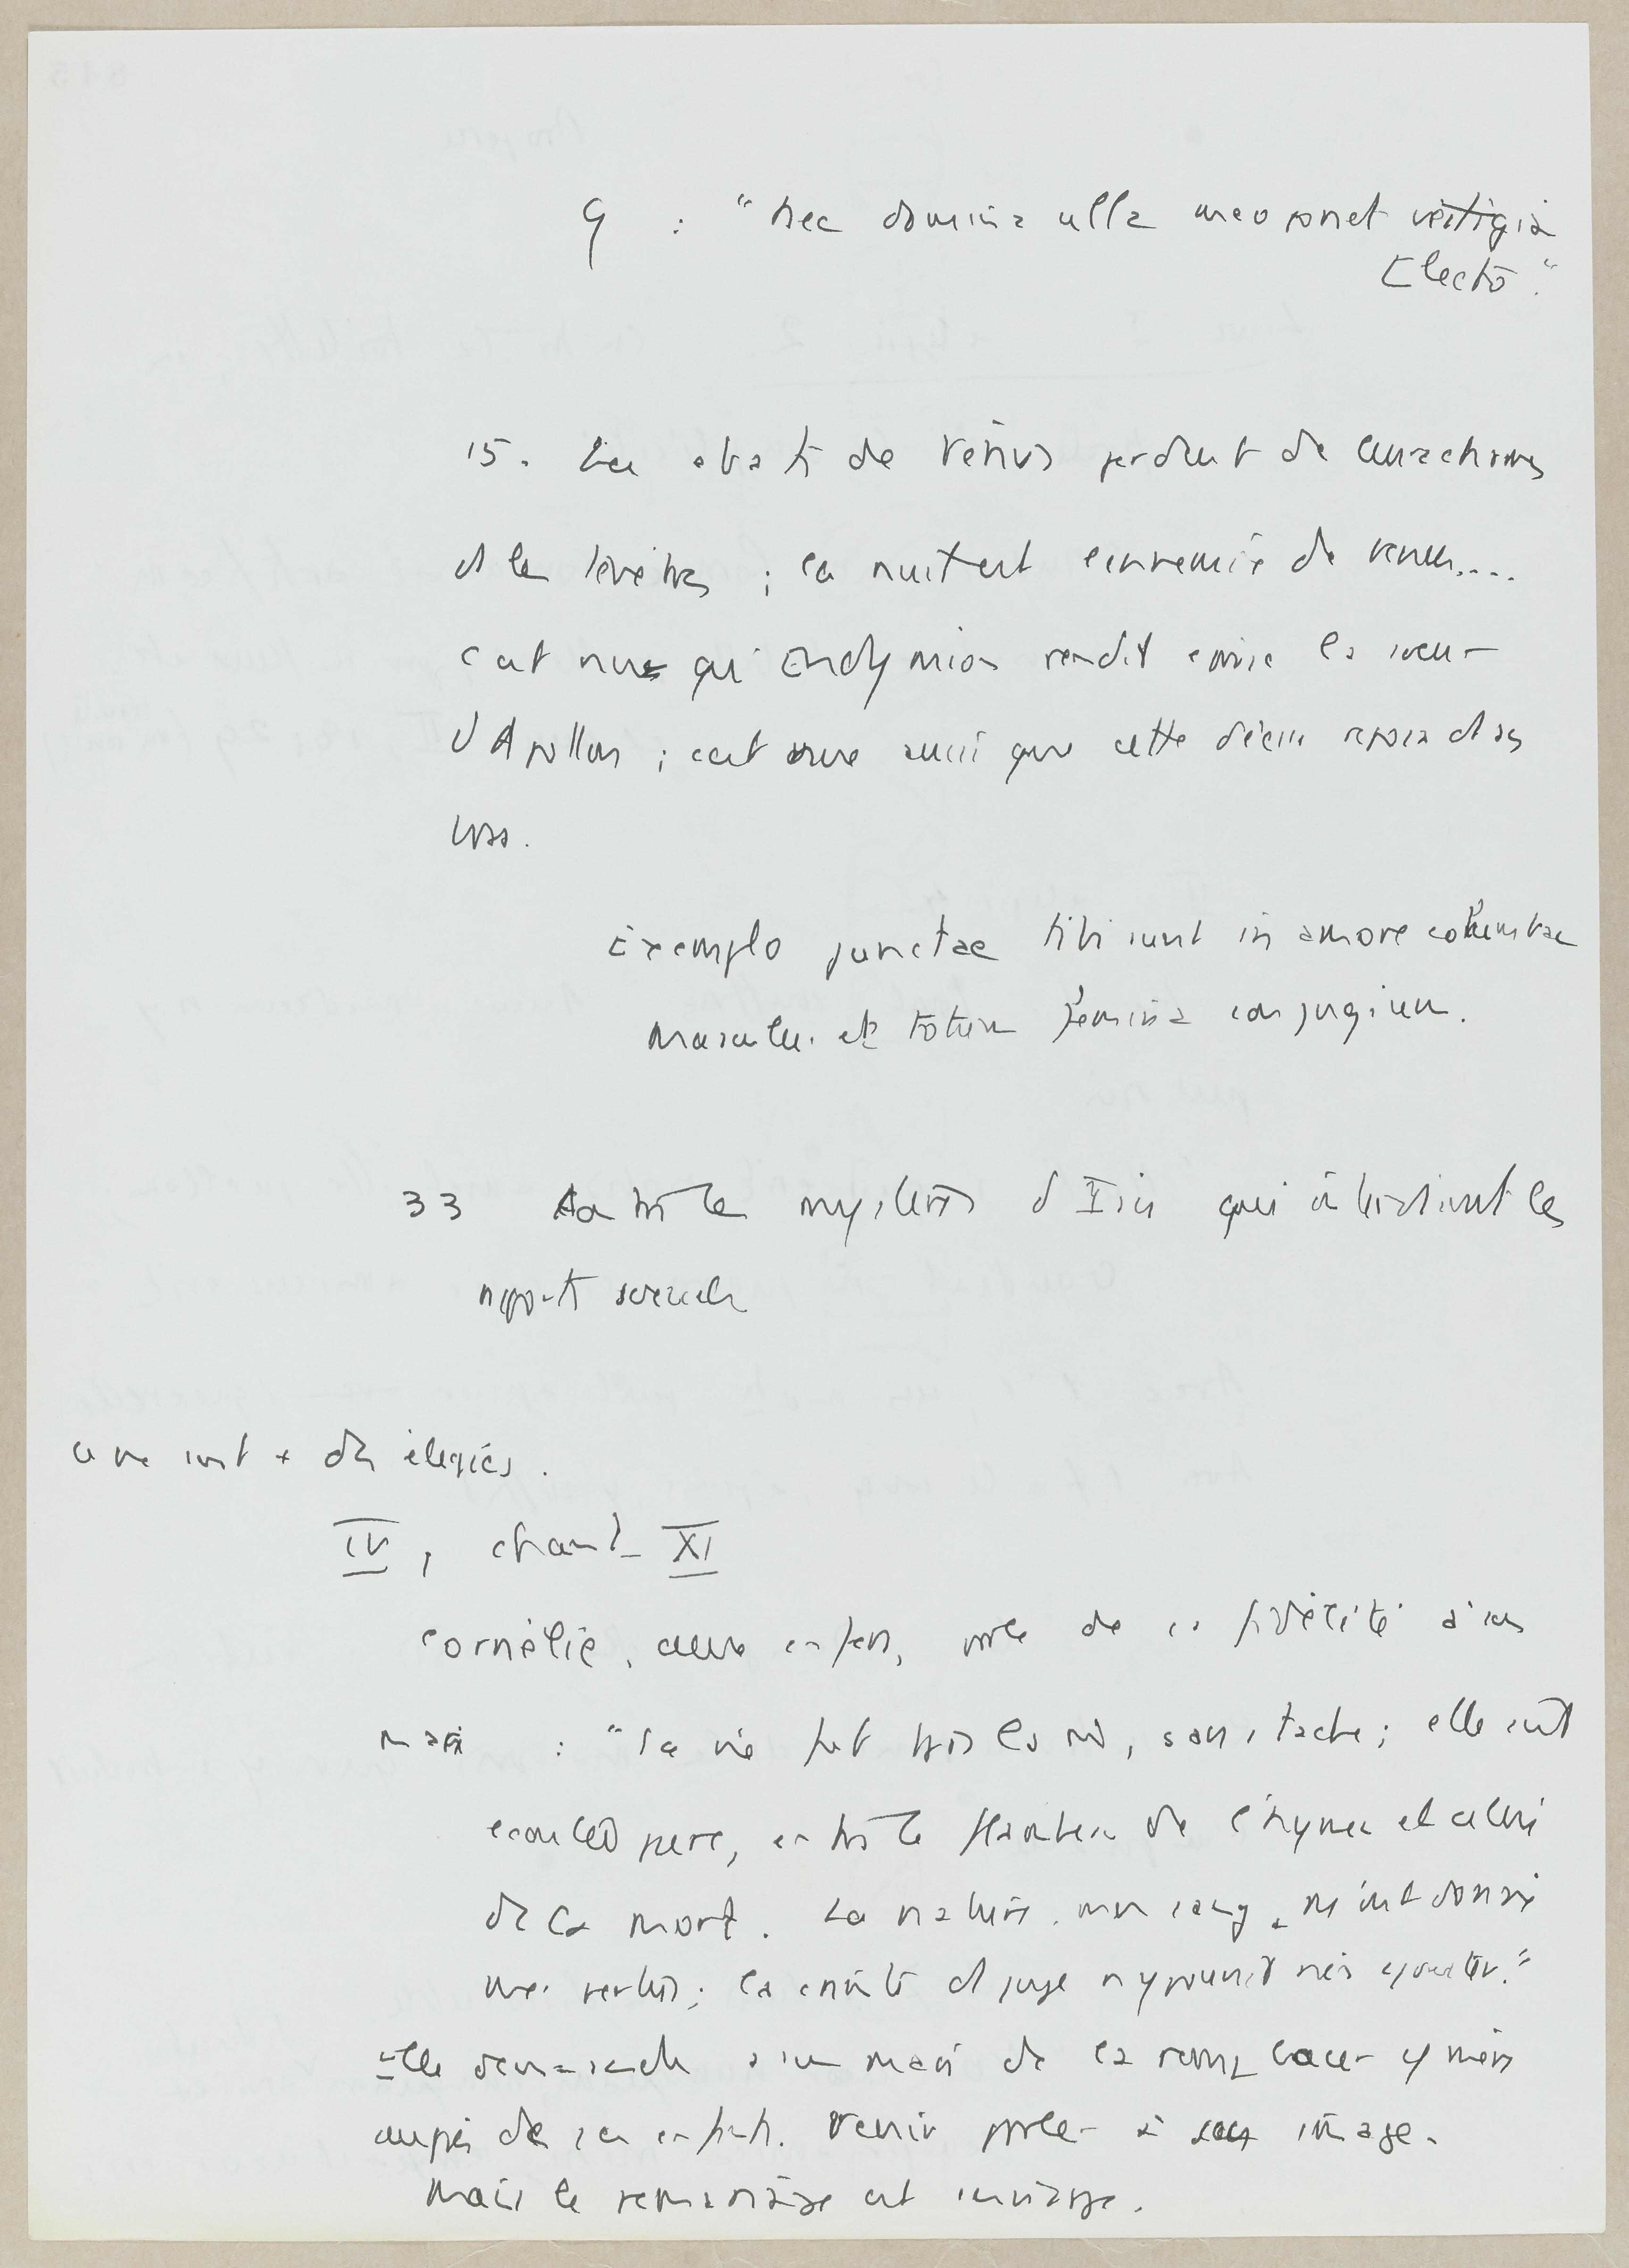 9 : "Nec domina ulla meo ponet vestigia
Electo."
15. Les ébats de Vénus perdent de leurs charmes
ds les ténèbres ; la nuit est ennemie de Vénus....
c'est nue qu'Endymion rendit la soeur
d'Apollon ; c'est nue aussi que cette déesse reposa ds ses
bras.
Exemplo junctae tibi sunt in amore columbae
Masculus et totum femina conjugium.
33 Contre les mystères d'Isis qui interdisent les
rapports sexuels
Ce ne sont + des élégies.
IV, chant XI
Cornélie, aux enfers, parle de sa fidélité à son
mari : "Ma vie fut sans tache ; elle s'est
écoulée pure, entre le flambeau de l'hymen et celui
de la mort. La nature, mon sang m'ont donné
mes vertus ; la crainte d'1 juge n'y pouvait rien ajouter."
Elle demande à son mari de la remplacer
auprès de ses enfants. Venir parler à son image.
Mais le remariage est envisagé.